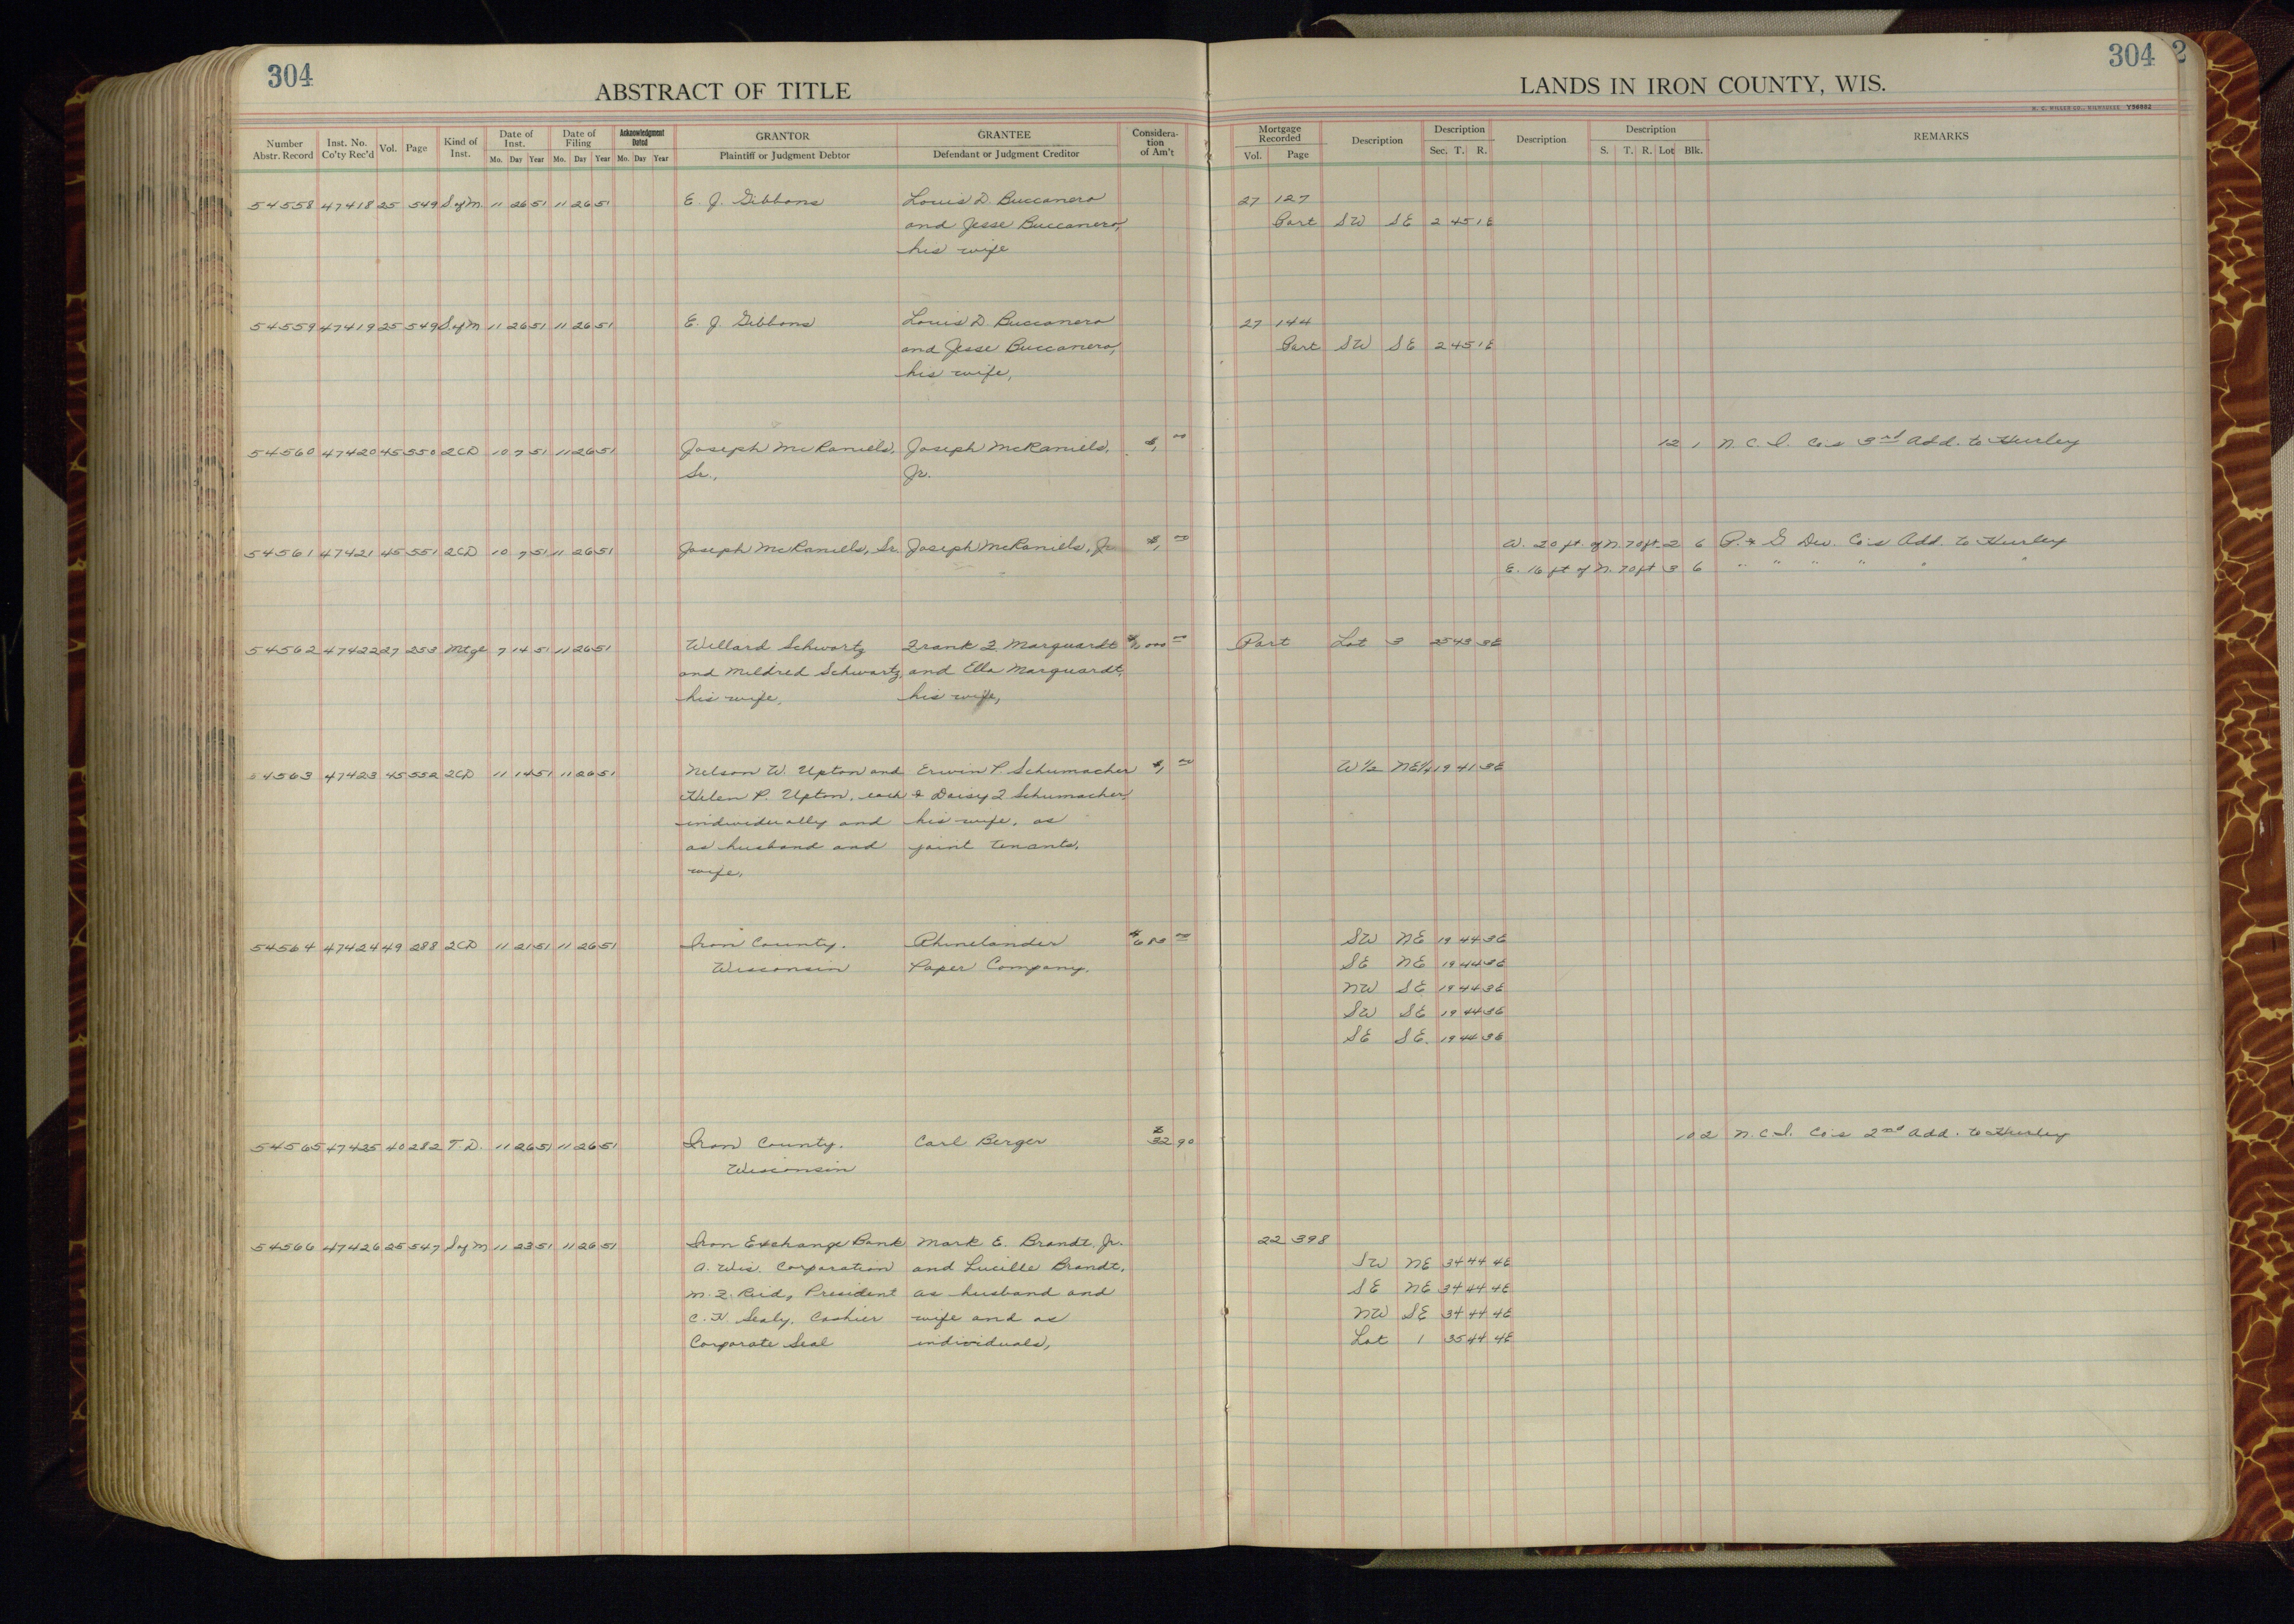 304
ABSTRACT OF TITLE
LANDS IN IRON COUNTY, WIS.
304 2
Number Abstr. Record Inst. No. Co'ty Rec'd Vol. Page Kind of Inst. Date of Inst. Mo. Day Year Date of Filing Mo. Day Year Acknowledgment Dated Mo. Day Year GRANTOR Plaintiff or Judgment Debtor GRANTEE Defendant or Judgment Creditor Considera-tion of Am't
Mortgage Recorded Vol. Page Description Description Sec. T. R. Description Description S. T. R. Lot Blk. REMARKS
54558 47418 25 549 S of M 11 26 51 11 26 51 E. J. Gibbons Louis D. Buccanero 27 127
and Jesse Buccanero, Part SW SE 2 45 1E
his wife
54559 47419 25 549 S of M 11 26 51 11 26 51 E. J. Gibbons Louis D. Buccanero 27 144
and Jesse Buccanero, Part SW SE 2 45 1E
his wife,
54560 47420 45 550 2CD 10 7 51 11 26 51 Joseph McRaniels, Joseph McRaniels, $1, 00 12 1 N. C. I. Co's 3rd Add. to Hurley
Sr., Jr.
54561 47421 45 551 2CD 10 7 51 11 26 51 Joseph McRaniels, Sr. Joseph McRaniels, Jr $1, 00 W. 20 ft. of N. 70 ft. 2 6 P. & G Dev. Co's Add. to Hurley
E. 16 ft of N. 70 ft 3 6 " " " " " "
54562 47422 27 253 Mtge 7 14 51 11 26 51 Willard Schwartz Frank F. Marquardt 00 Part Lot 3 25 43 3E
and Mildred Schwartz, and Ella Marquardt,
his wife, his wife,
54563 47423 45 552 2CD 11 14 51 11 26 51 Nelson W. Upton and Erwin P. Schumacher $1, 00 W½ NE¼ 19 41 3E
Helen P. Upton, each & Daisy F Schumacher,
individually and his wife, as
as husband and joint tenants,
wife,
54564 47424 49 288 2CD 11 21 51 11 26 51 Iron County. Rhinelander 00 SW NE 19 44 3E
Wisconsin Paper Company. SE NE 19 44 3E
NW SE 19 44 3E
SW SE 19 44 3E
SE SE. 19 44 3E
54565 47425 40 282 T. D. 11 26 51 11 26 51 Iron County. Carl Berger $32 90 10 2 N. C. I. Co's 2nd Add. to Hurley
Wisconsin
54566 47426 25 547 S of M 11 23 51 11 26 51 Iron Exchange Bank Mark E. Brandt. Jr. 22 398
A. Wis. Corporation and Lucille Brandt, SW NE 34 44 4E
Reid, President as husband and SE NE 34 44 4E
Sealy, Cashier wife and as NW SE 34 44 4E
Corporate Seal individuals, Lot 1 35 44 4E